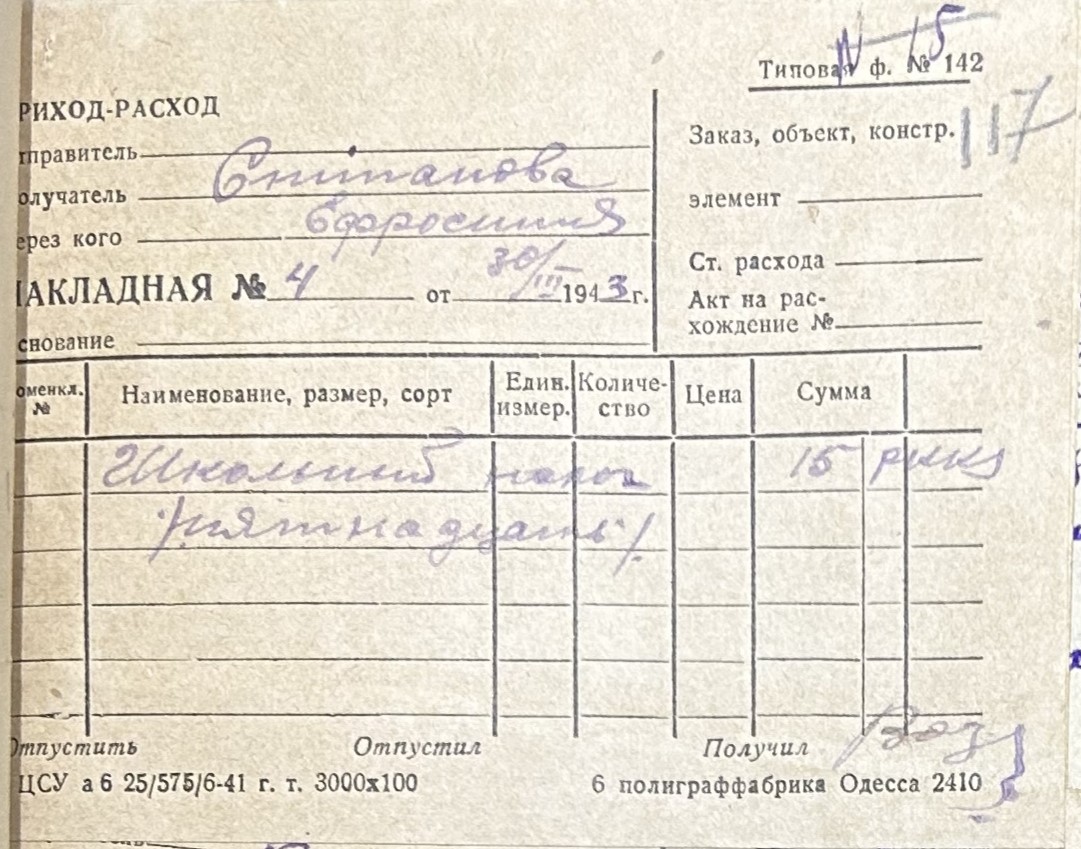 N 15
Типовая ф. № 142
РИХОД-РАСХОД
Заказ, объект, констр. 117
тправитель
олучатель
ерез кого
Ефросиния
элемент
Ст. расхода
АКЛАДНАЯ № 4 от 30/III 1943 г.
Акт на рас-
хождение №
снование
оменкл. №
Наименование, размер, сорт
Един. измер.
Количе-
ство
Цена
Сумма
Школьный налог 15 РККS
/пятнадцать/.
Отпустить Отпустил Получил
ЦСУ а6 25/575/6-41 г. т. 3000х100 6 полиграффабрика Одесса 2410